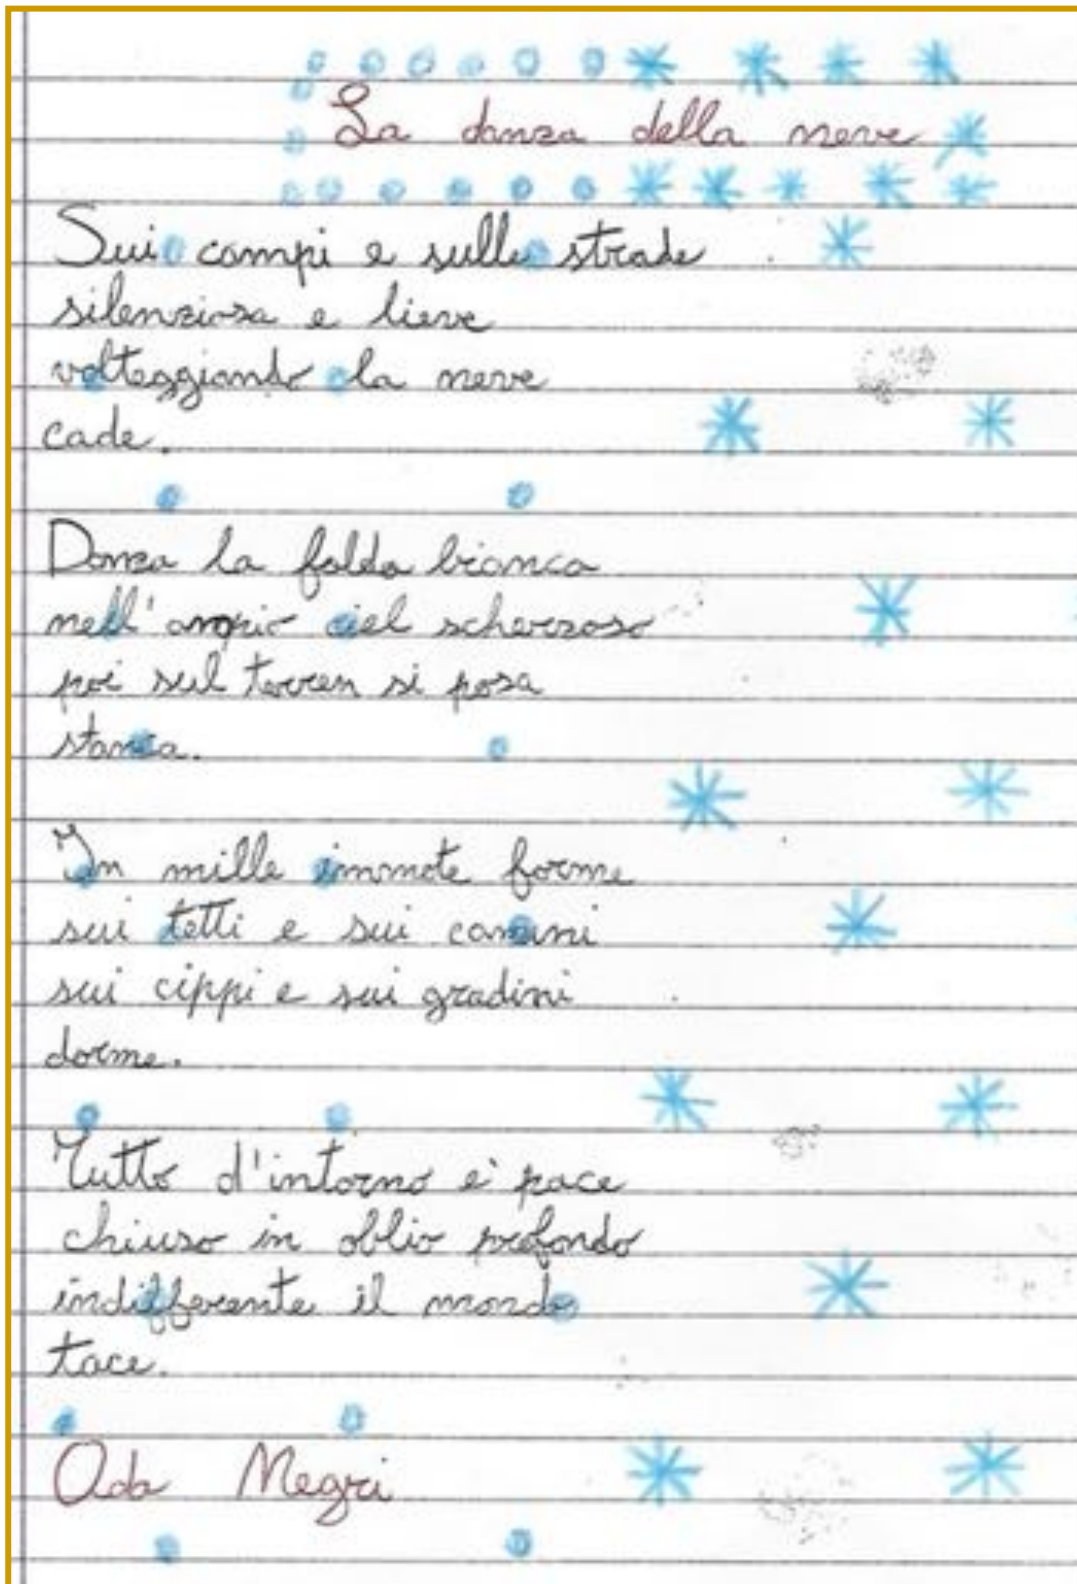 La danza della neve
Sui campi e sulle strade
silenziosa e lieve
volteggiando la neve
cade.
Danza la falda bianca
nell'ampio ciel scherzoso
poi sul terren si posa
stanca.
In mille immote forme
sui tetti e sui camini
sui cippi e sui gradini
dorme.
Tutto d'intorno è pace
chiuso in oblio profondo
indifferente il mondo
tace.
Ada Negri